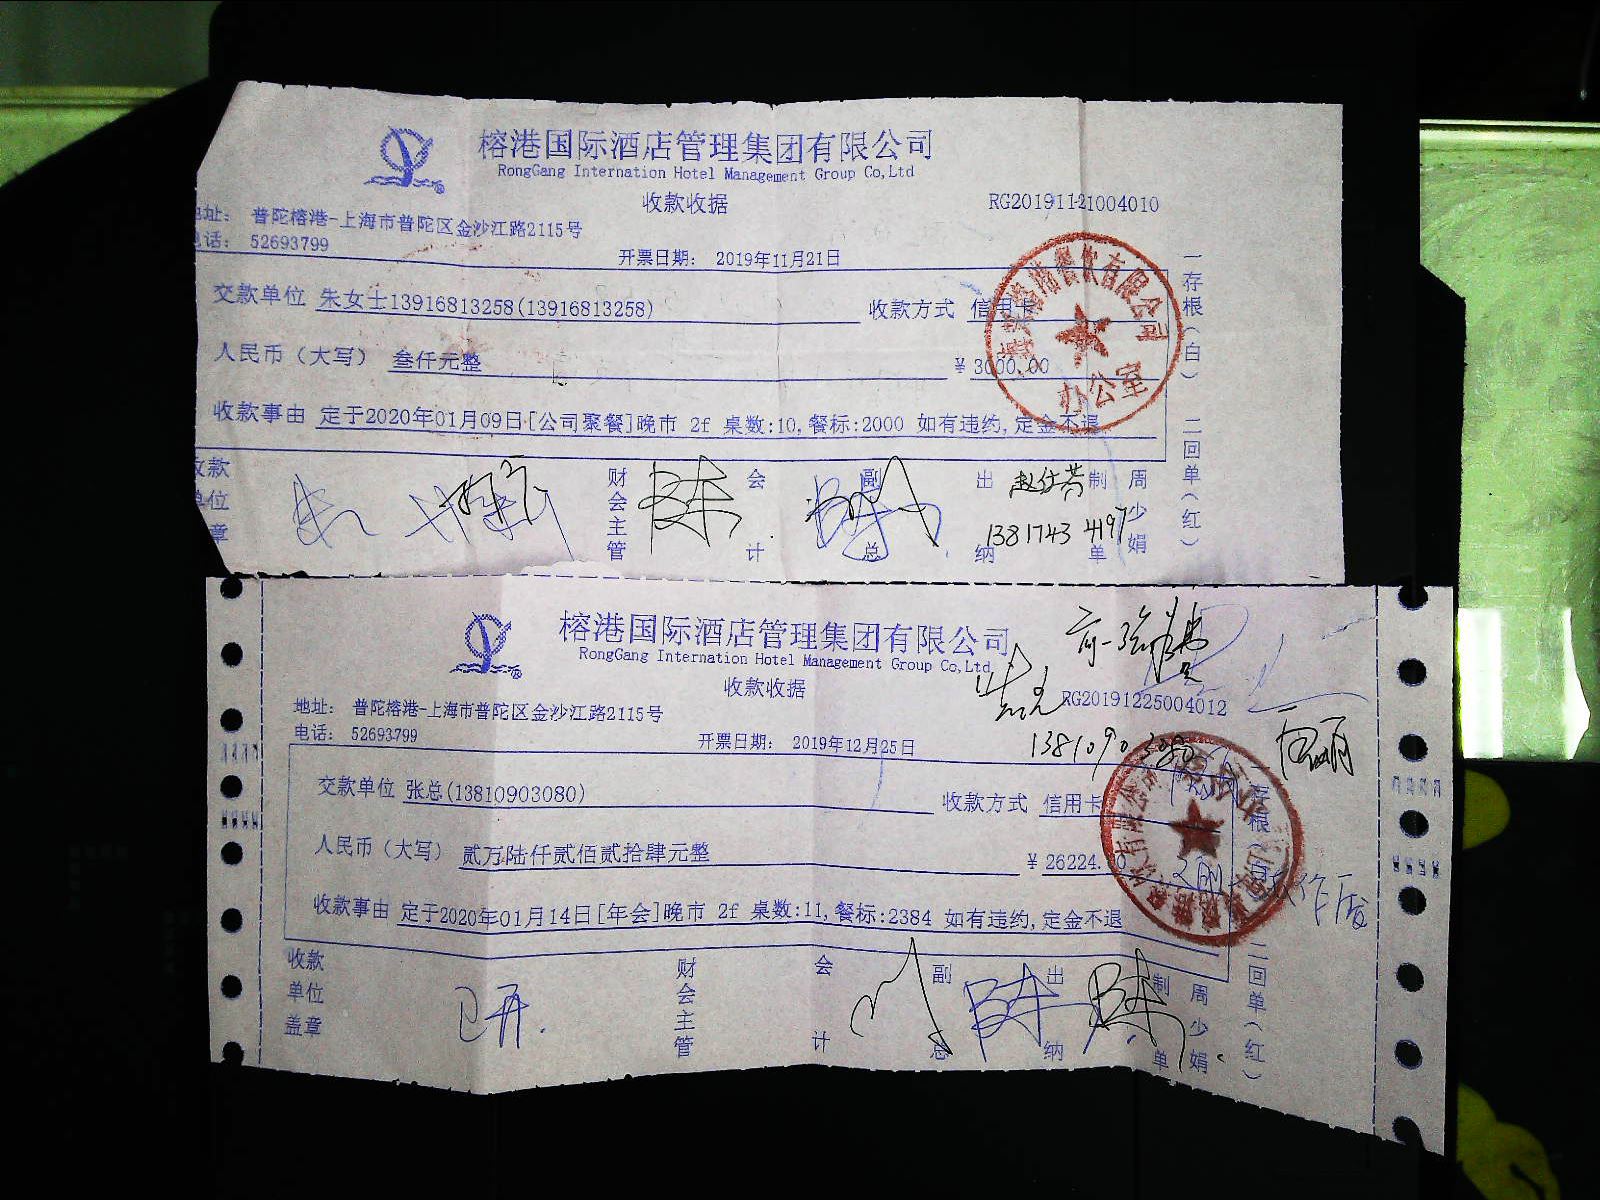 榕港国际酒店管理集团有限公司
RongGang Internation Hotel Management Group Co,Ltd
收款收据
RG20191121004010
地址： 普陀榕港-上海市普陀区金沙江路2115号
电话： 52693799
开票日期： 2019年11月21日
交款单位 朱女士13916813258(13916813258) 收款方式 信用卡
人民币（大写） 叁仟元整 ¥ 3000.00
收款事由 定于2020年01月09日[公司聚餐]晚市 2f 桌数:10,餐标:2000 如有违约,定金不退
一存根(白) 二回单(红)
餐饮有限公司
办公室
收款单位盖章 财会主管 会计 副总 出纳 制单 周少娟
赵仕芳
13817434197
榕港国际酒店管理集团有限公司
RongGang Internation Hotel Management Group Co,Ltd
收款收据
RG20191225004012
地址： 普陀榕港-上海市普陀区金沙江路2115号
电话： 52693799
开票日期： 2019年12月25日
13810903080
交款单位 张总(13810903080) 收款方式 信用卡
人民币（大写） 贰万陆仟贰佰贰拾肆元整 ¥ 26224.
收款事由 定于2020年01月14日[年会]晚市 2f 桌数:11,餐标:2384 如有违约,定金不退
存根 二回单(红)
有限公司
收款单位盖章 财会主管 会计 副总 出纳 制单 周少娟